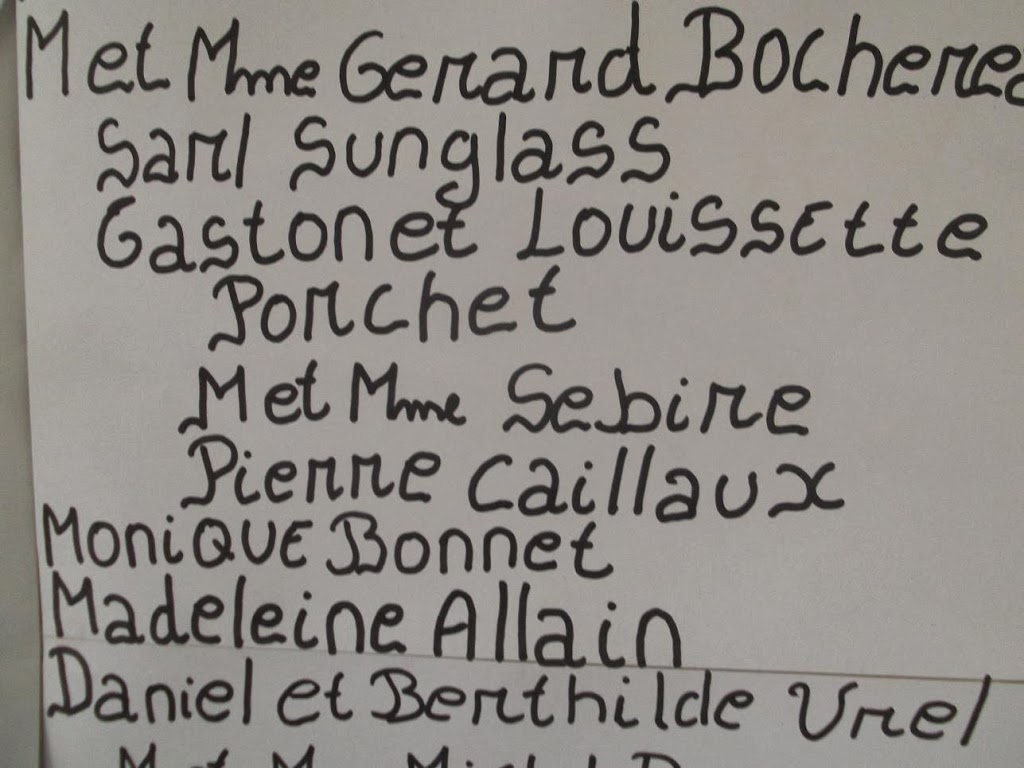 M et Mme Gerard Bochere
Sarl Sunglass
Gaston et Louissette
Porchet
M et Mme Sebire
Pierre Caillaux
Monique Bonnet
Madeleine Allain
Daniel et Berthilde Urel